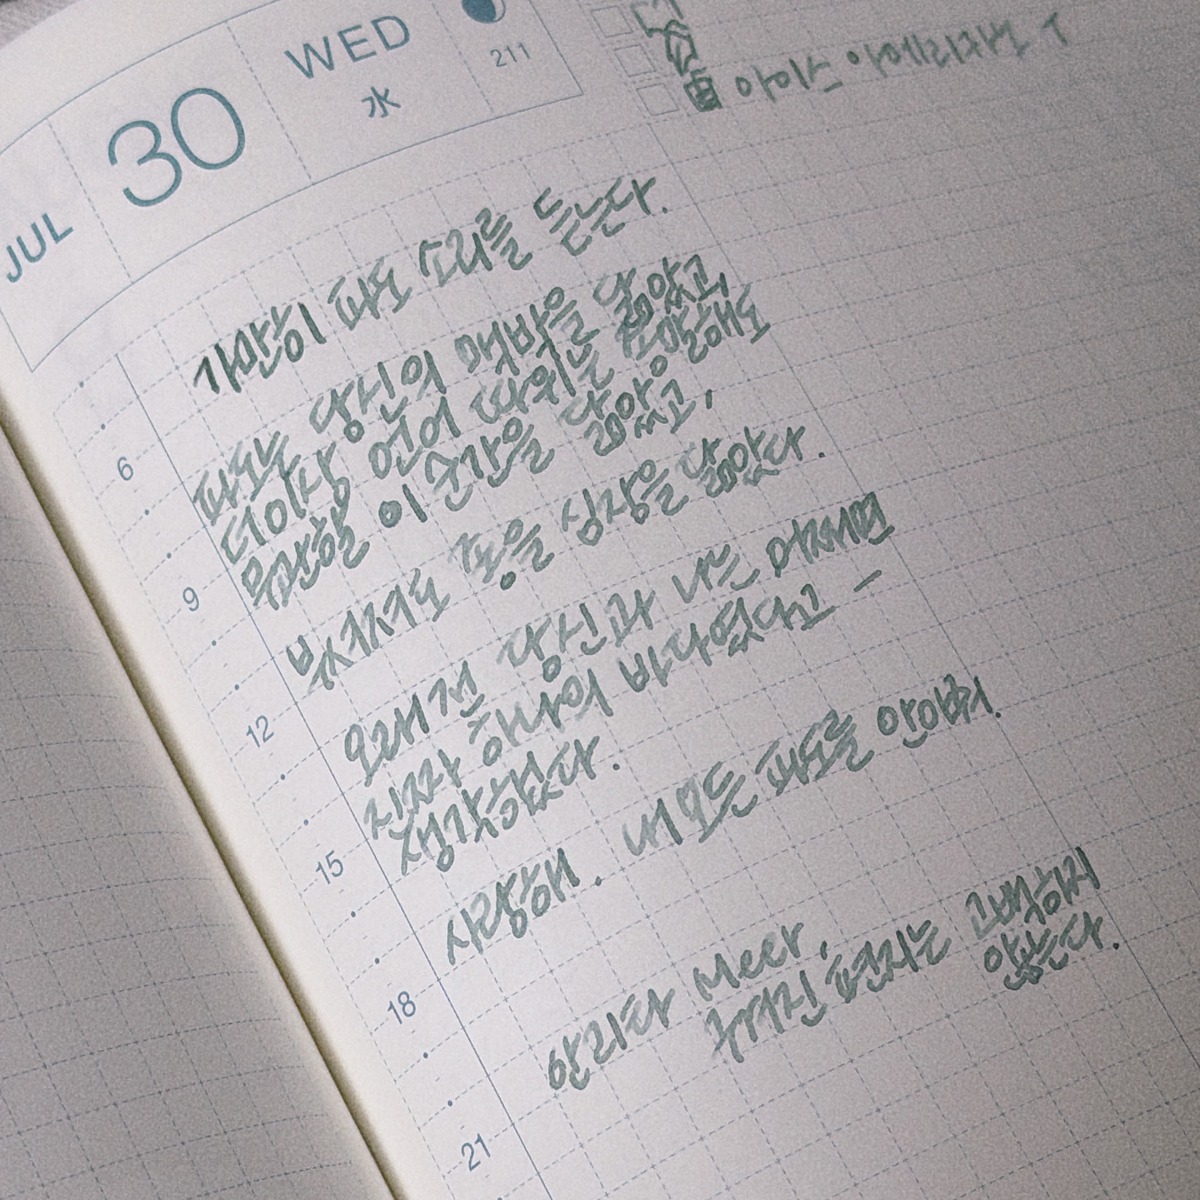 JUL 30 WED 211
水
아이스 아메리카노 1
가만히 파도 소리를 듣는다.
파도는 당신의 맥박을 닮았고,
더이상 언어 따위는 소망해도
무관할 이 순간을 닮았고,
부서져도 좋을 심장을 닮았다.
오래전 당신과 나는 어쩌면
진짜 하나의 바다였다고 —
생각하였다.
사랑해. 내일은 파도를 안아봐.
안리타 Meer,
구겨진 편지는 고백하지
않는다.
6
9
12
15
18
21